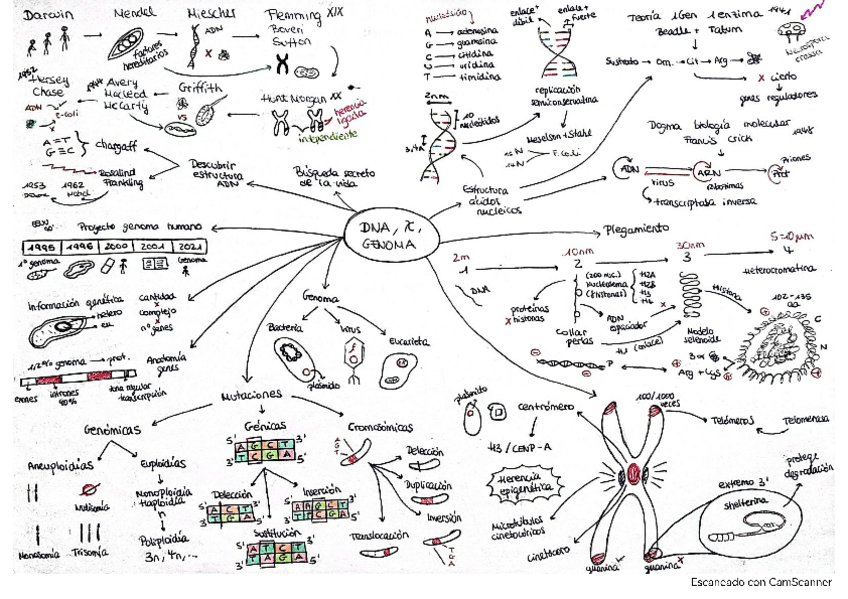 Darwin
Mendel
factores
hereditarios
Miescher
ADN
Flemming XIX
Boveri
Sutton
1952
Hersey
Chase
ADN
E-coli
1944
Avery
Macleod
McCarty
Griffith
VS
Hunt Morgan XX
herencia
ligada
independiente
A=T
G≡C
chargaff
Rosalind
Frankling
1953
1962
Nobel
Descubrir
estructura
ADN
Búsqueda secreto
de la vida
nucleósido
A → adenosina
G → guanosina
C → citidina
U → uridina
T → timidina
enlace+
débil
enlace+
fuerte
replicación
semiconservativa
Meselson+Stahl
E.coli
2nm
10
nucleótidos
Estructura
ácidos
nucleicos
Teoría 1Gen 1enzima 1941
Beadle + Tatum
Sustrato → Orn. → Cit → Arg
x cierto
genes reguladores
Dogma biología molecular
Francis Crick
ADN
ARN
Prot
Priones
virus
ribosomas
transcriptasa inversa
DNA, X,
GENOMA
Proyecto genoma humano
1995 1996 2000 2001 2021
1º genoma
Genoma
Información genética
hetero
eu
cantidad
x
complejo
x
nº genes
1,2% genoma → prot.
Anatomía
genes
exones
intrones
zona regular
transcripción
Genoma
Bacteria
plásmido
Virus
Eucariota
Plegamiento
2m
1
10nm
2
30nm
3
4
DNA
(200 nuc.)
Nucleosoma
(8 histonas)
H2A
H2B
H3
H4
proteínas
x histonas
collar
perlas
ADN
espaciador
H1 (enlace)
Modelo
solenoide
Heterocromatina
Histona
102-135
aa
C
N
P
Arg + Lys
Mutaciones
Genómicas
Aneuploidías
Nulisomía
Monosomía
Trisomía
Euploidías
Monoploidía
haploidía
Poliploidía
3n, 4n, ...
Génicas
5' A G C T 3'
3' T C G A 5'
Delección
Inserción
Sustitución
Cromosómicas
Delección
Duplicación
Inversión
Translocación
plásmido
centrómero
H3 / CENP-A
Herencia
epigenética
Microtúbulos
cinetocóricos
cinetócoro
100/1000
veces
Telómeros
Telomerasa
protege
degradación
extremo 3'
shelterina
guanina
guanina
Escaneado con CamScanner